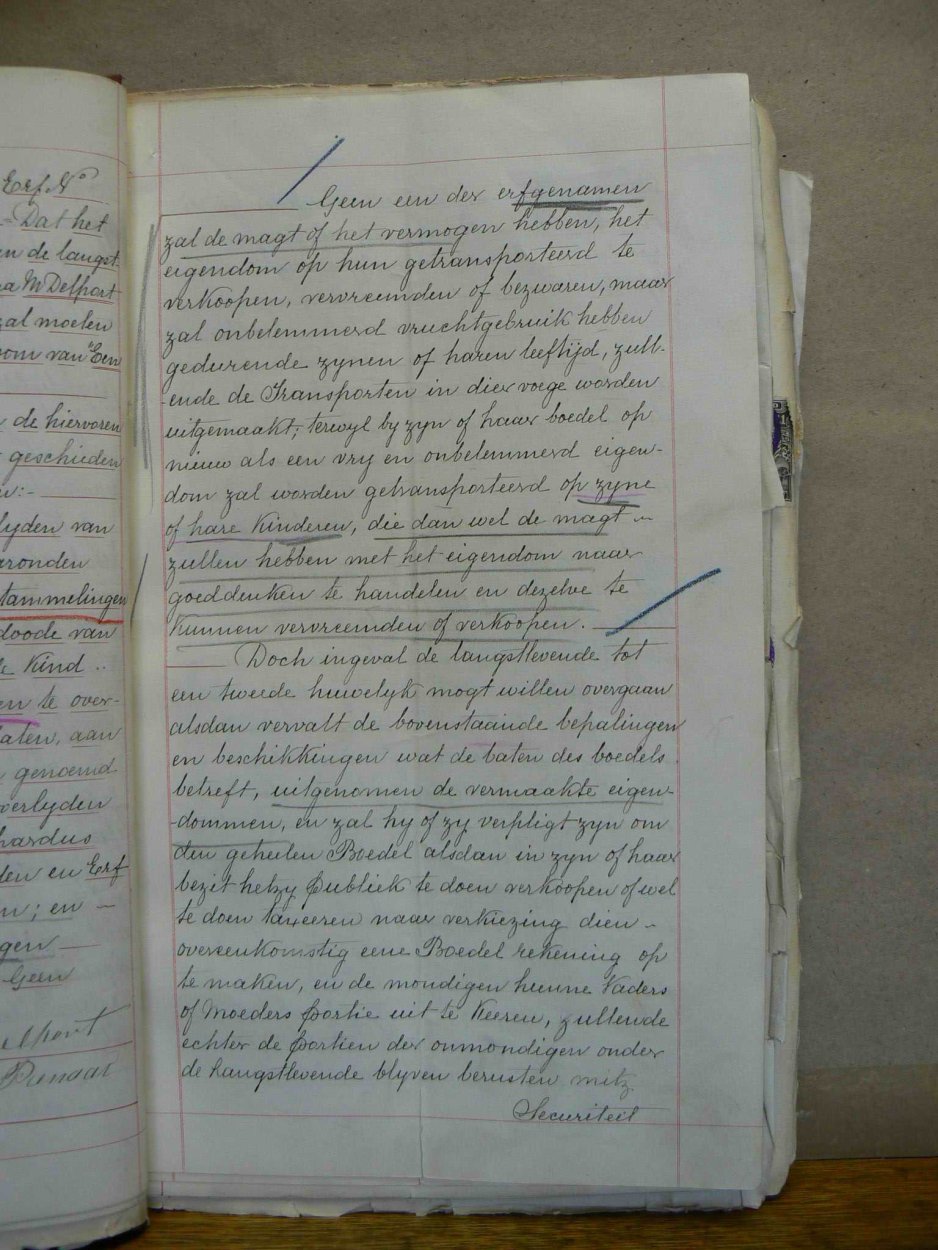 Erf No
- Dat het
en de langst-
na M Delport
zal moeten
som van "Een
de hiervoren
geschieden
en:-
lyden van
aronden
tammelingen
doode van
de Kind ..
en te over-
laten, aan
genoemd
verlyden
hardus
den en Erf
n; en ~
gen
Geen
elport
Pienaar
Geen een der erfgenamen
zal de magt of het vermogen hebben, het
eigendom op hun getransporteerd te
verkoopen, vervreemden of bezwaren, maar
zal onbelemmerd vruchtgebruik hebben
gedurende zynen of haren leeftijd, zull-
ende de Transporten in dier voege worden
uitgemaakt; terwyl by zyn of haar boedel op
nieuw als een vry en onbelemmerd eigen-
dom zal worden getransporteerd op zyne
of hare Kinderen, die dan wel de magt ~
zullen hebben met het eigendom naar
goeddenken te handelen en dezelve te
Kunnen vervreemden of verkoopen.
Doch ingeval de langstlevende tot
een tweede huwelyk mogt willen overgaan
alsdan vervalt de bovenstaande bepalingen
en beschikkingen wat de baten des boedels
betreft, uitgenomen de vermaakte eigen-
-dommen, en zal hy of zy verpligt zyn om
den geheelen Boedel alsdan in zyn of haar
bezit hetzy publiek te doen verkoopen of wel
te doen taxeeren naar verkiezing dien ~
overeenkomstig eene Boedel rekening op
te maken, en de mondigen hunne Vaders
of Moeders portie uit te Keeren, zullende
echter de portien der onmondigen onder
de langstlevende blyven berusten mitz
Securiteit